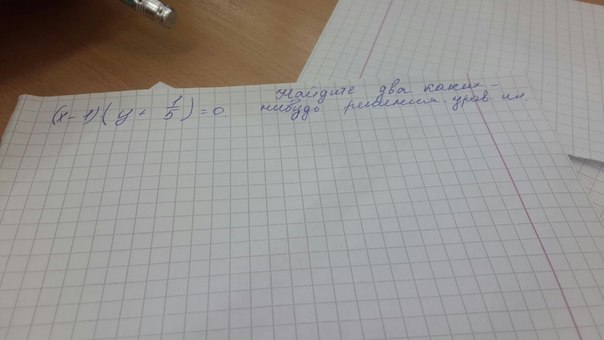 (x-1)(y + 1/5) = 0.
Найдите два каких-
нибудь решения урав-ия.